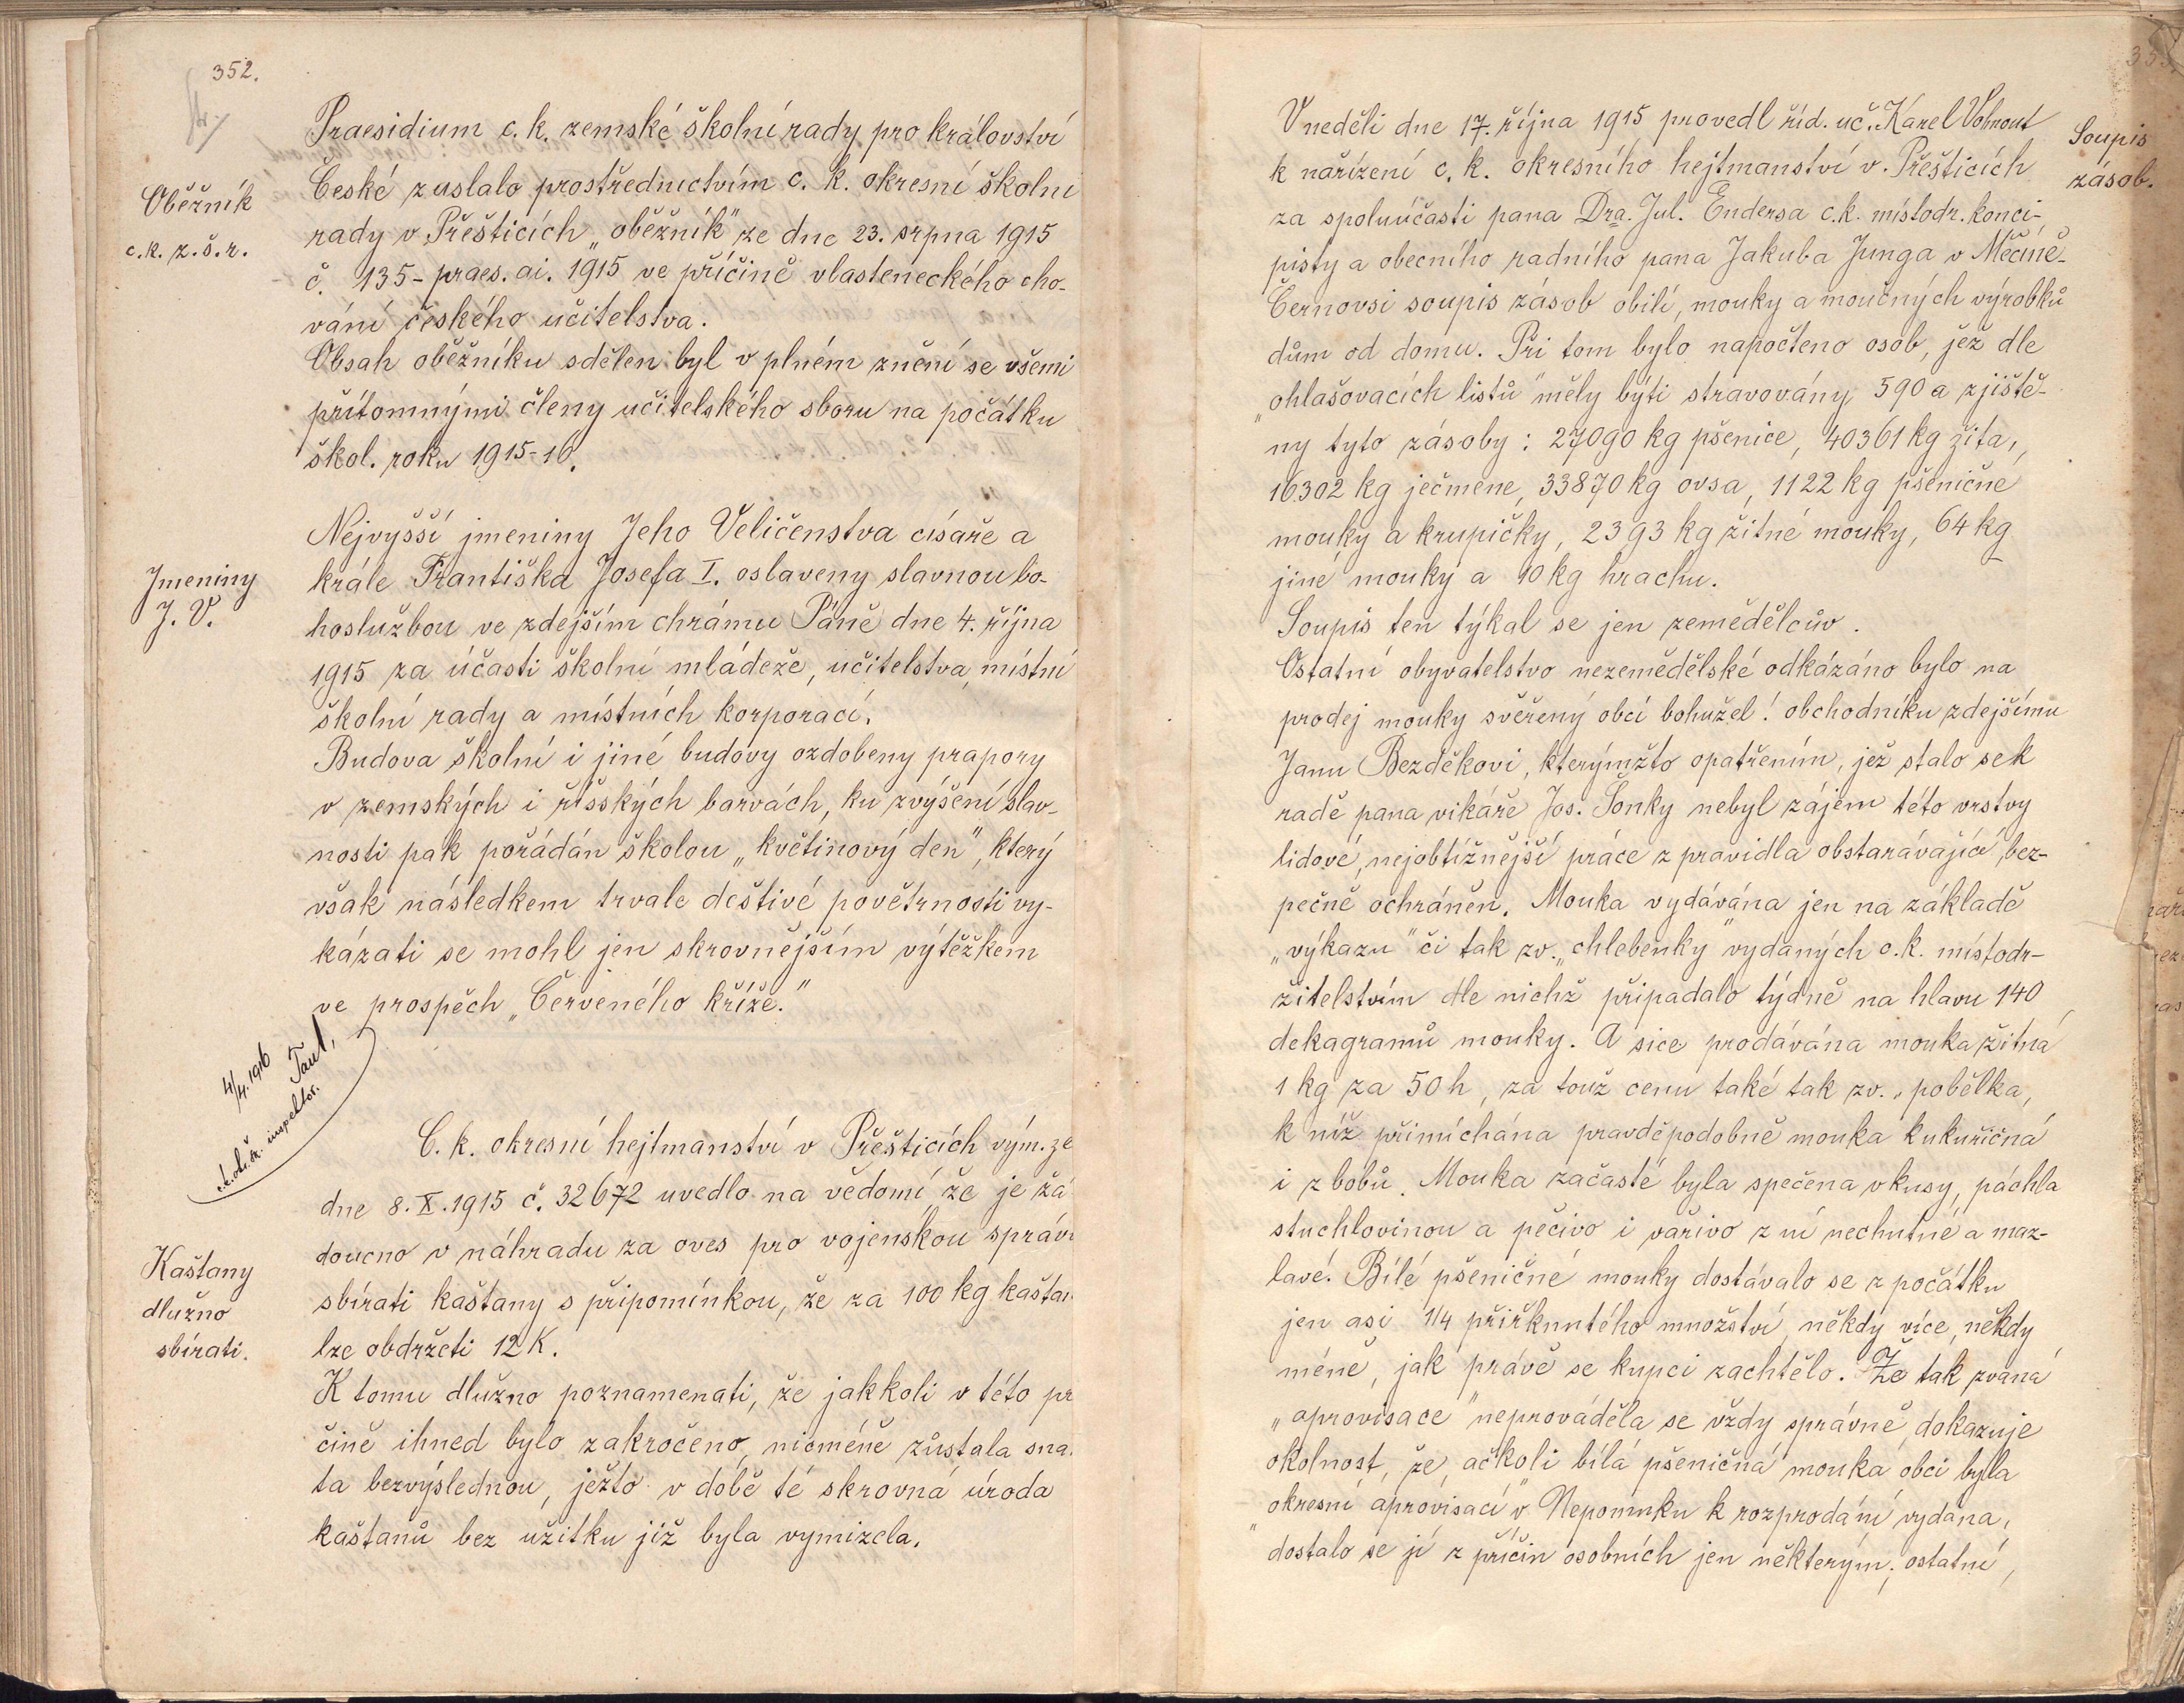 352.
Praesidium c. k. zemské školní rady pro království
České zaslalo prostřednictvím c. k. okresní školní
Oběžník
c. k. z. š. r.
rady v Přešticích „oběžník" ze dne 23. srpna 1915
č. 135-praes. ai. 1915 ve příčině vlasteneckého cho-
vání českého učitelstva.
Obsah oběžníku sdělen byl v plném znění se všemi
přítomnými členy učitelského sboru na počátku
škol. roku 1915-16.
Nejvyšší jmeniny Jeho Veličenstva císaře a
Jmeniny
J. V.
krále Františka Josefa I. oslaveny slavnou bo-
hoslužbou ve zdejším chrámu Páně dne 4. října
1915 za účasti školní mládeže, učitelstva, místní
školní rady a místních korporací.
Budova školní i jiné budovy ozdobeny prapory
v zemských i říšských barvách, ku zvýšení slav-
nosti pak pořádán školou „květinový den", který
však následkem trvale deštivé povětrnosti vy-
kázati se mohl jen skrovnějším výtěžkem
ve prospěch „Červeného kříže."
4/4. 1916
inspektor.
C. k. okresní hejtmanství v Přešticích vým. ze
dne 8. X. 1915 č. 32672 uvedlo na vědomí že je žá
Kaštany
dlužno
sbírati.
doucno v náhradu za oves pro vojenskou správu
sbírati kaštany s připomínkou, že za 100 kg kaštan
lze obdržeti 12 K.
K tomu dlužno poznamenati, že jakkoli v této pr
čině ihned bylo zakročeno, nicméně zůstala sna
ta bezvýslednou, ježto v době té skrovná úroda
kaštanů bez užitku již byla vymizela.
V neděli dne 17. října 1915 provedl říd. uč. Karel Vohnout
Soupis
zásob.
k nařízení c. k. okresního hejtmanství v Přešticích
za spoluúčasti pana Dra. Jul. Endersa c. k. místodr. konci-
pisty a obecního radního pana Jakuba Junga v Měčíně-
Černovsi soupis zásob obilí, mouky a moučných výrobků
dům od domu. Při tom bylo napočteno osob, jež dle
„ohlašovacích listů" měly býti stravovány 590 a zjiště-
ny tyto zásoby: 27090 kg pšenice, 40361 kg žita,
16302 kg ječmene, 33870 kg ovsa, 1122 kg pšeničné
mouky a krupičky, 2393 kg žitné mouky, 64 kg
jiné mouky a 10 kg hrachu.
Soupis ten týkal se jen zemědělcův.
Ostatní obyvatelstvo nezemědělské odkázáno bylo na
prodej mouky svěřený obcí bohužel! obchodníku zdejšímu
Janu Bezděkovi, kterýmžto opatřením, jež stalo se k
radě pana vikáře Jos. Šonky nebyl zájem této vrstvy
lidové, nejobtížnější práce z pravidla obstarávající, bez-
pečně ochráněn. Mouka vydávána jen na základě
„výkazu" či tak zv. „chlebenky" vydaných c. k. místodr-
žitelstvím dle nichž připadalo týdně na hlavu 140
dekagramů mouky. A sice prodávána mouka žitná
1 kg za 50 h, za touž cenu také tak zv. „pobělka,
k níž přimíchána pravděpodobně mouka kukuřičná
i z bobů. Mouka začasté byla spečena v kusy, páchla
stuchlovinou a pečivo i vařivo z ní nechutné a maz-
lavé. Bílé pšeničné mouky dostávalo se z počátku
jen asi 1/4 přiřknutého množství, někdy více, někdy
méně, jak právě se kupci zachtělo. Že tak zvaná
„aprovisace" neprováděla se vždy správně, dokazuje
okolnost, že, ačkoli bílá pšeničná mouka obci byla
„okresní aprovisací" v Nepomuku k rozprodání vydána,
dostalo se jí z příčin osobních jen některým; ostatní,